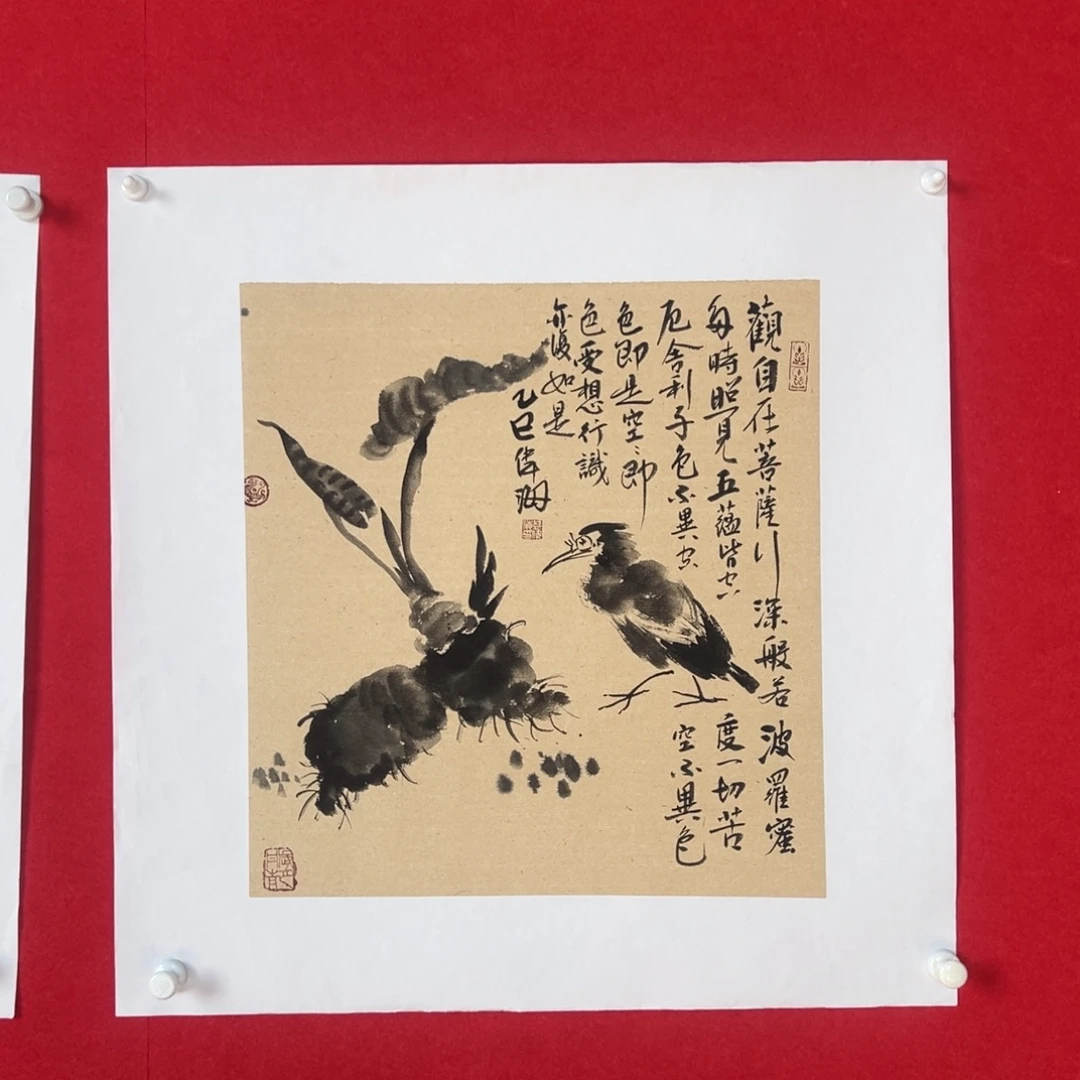 觀自在菩薩行深般若波羅蜜
多時照見五蘊皆空度一切苦
厄舍利子色不異空空不異色
色即是空〻即
色受想行識
亦復如是
乙巳